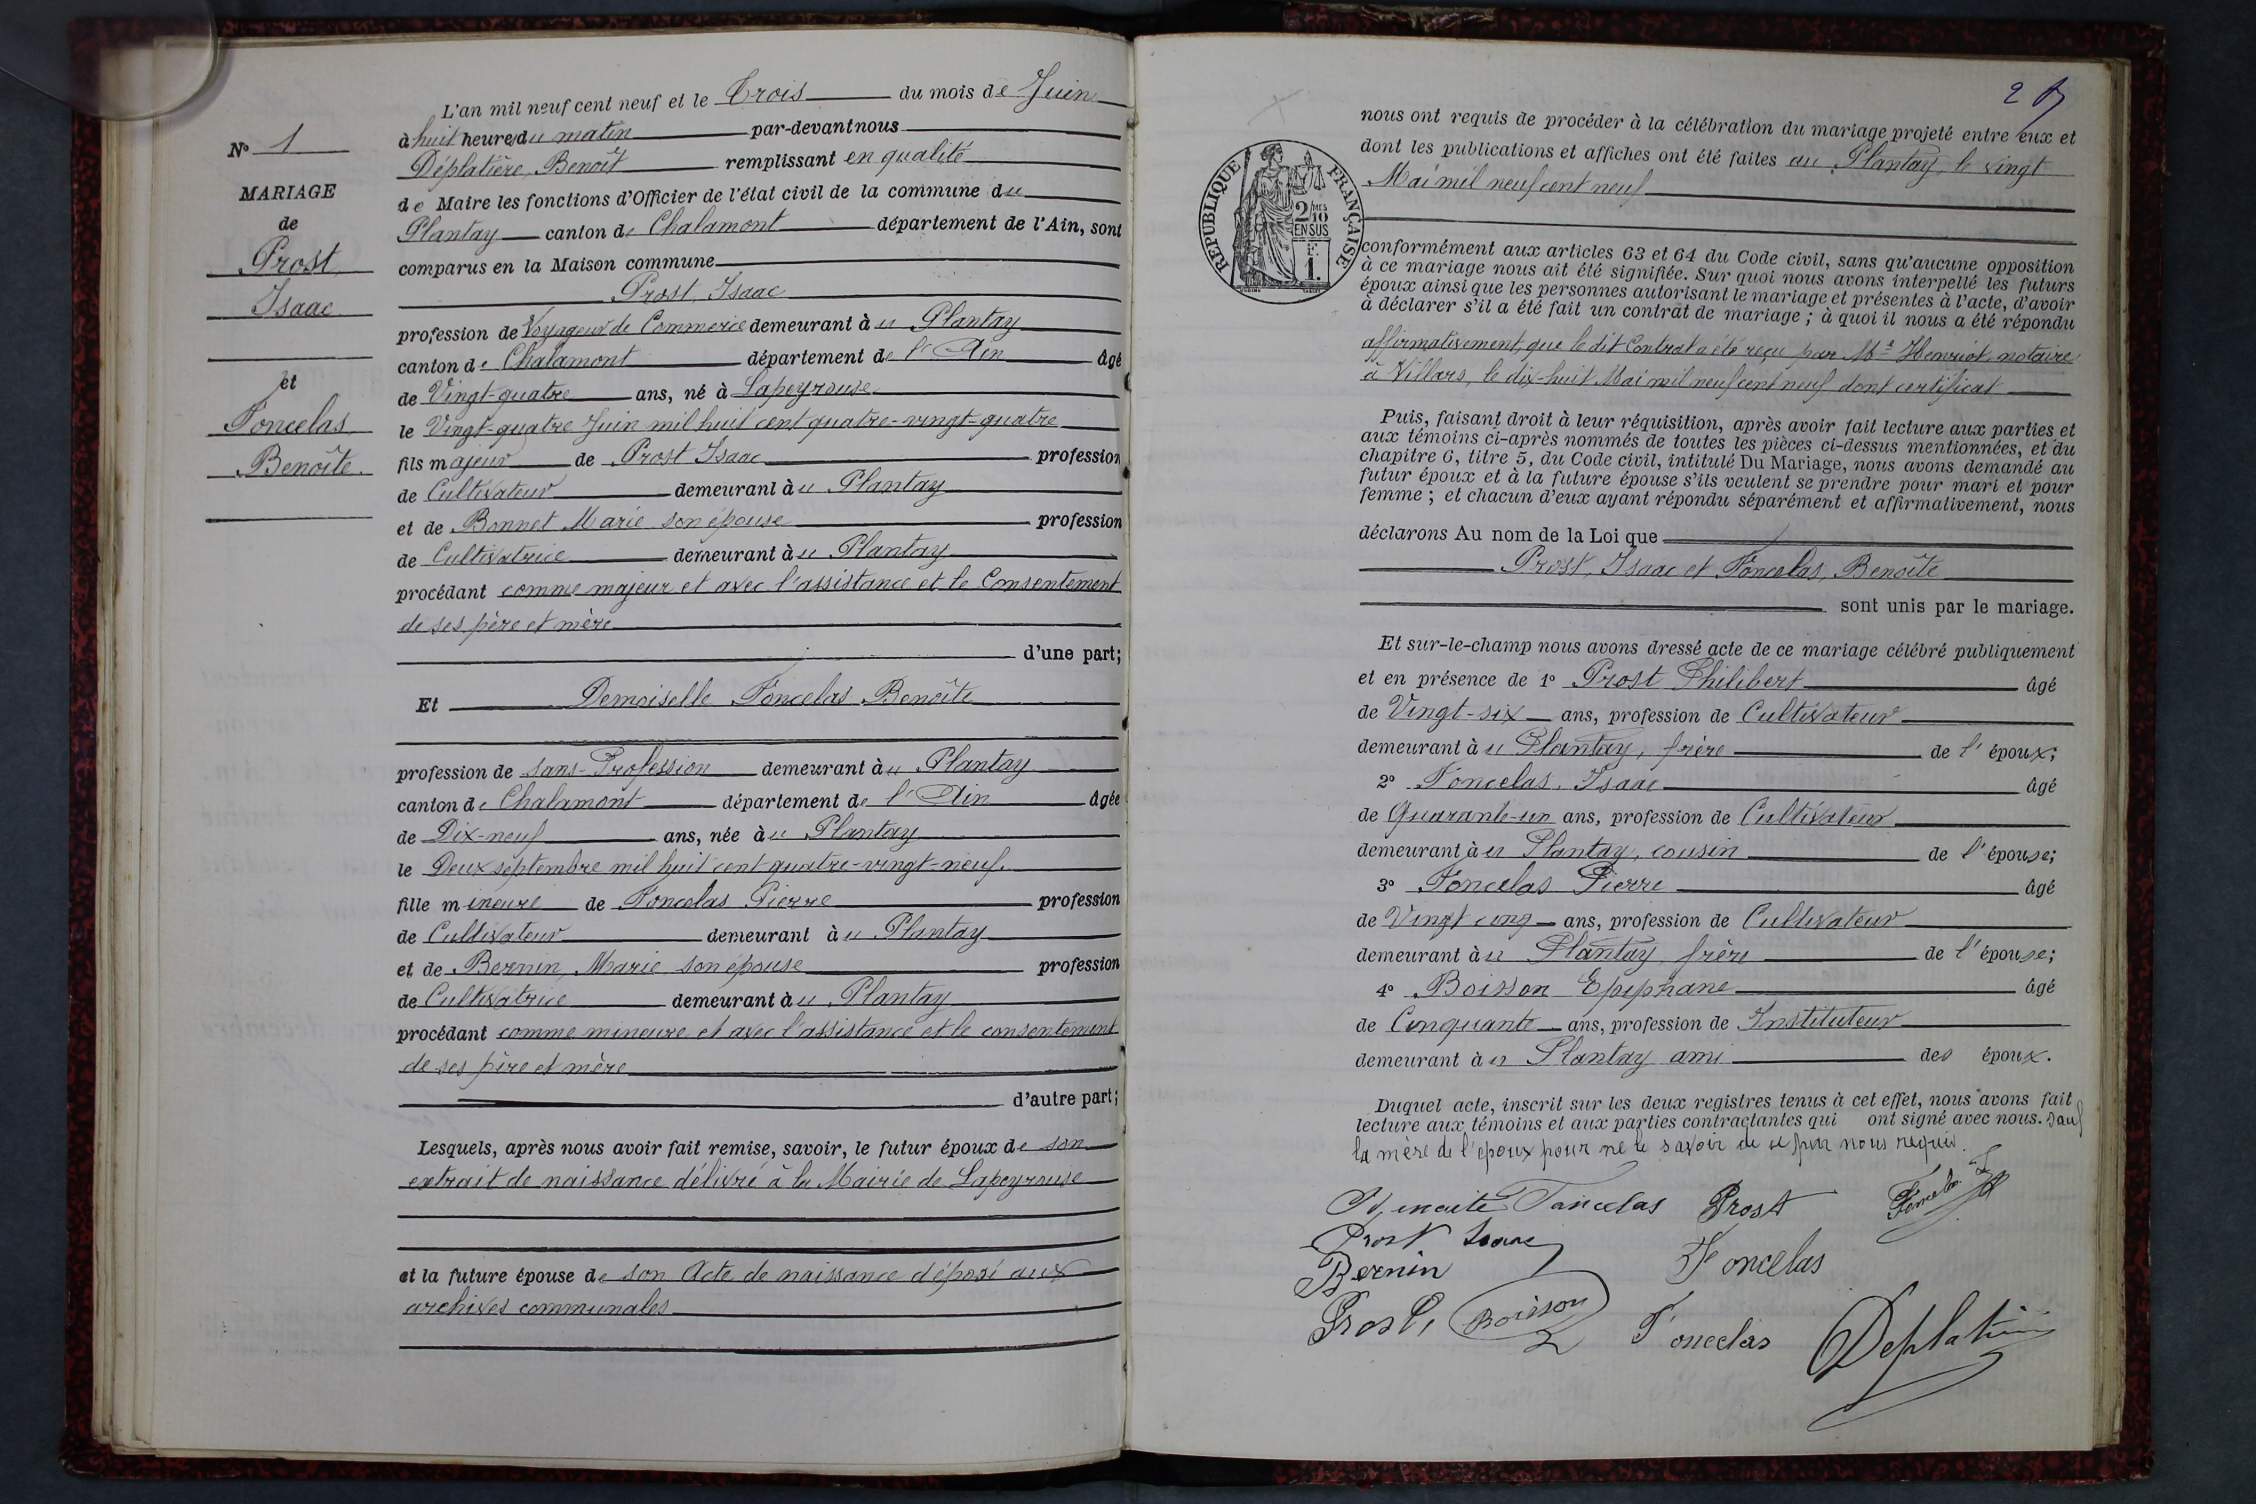 N° 1
MARIAGE
de
Prost
Isaac
et
Foncelas
Benoîte.
L'an mil neuf cent neuf et le Trois du mois de Juin
à huit heures du matin par-devant nous
Déplatière, Benoît remplissant en qualité
de Maire les fonctions d'Officier de l'état civil de la commune du
Plantay canton de Chalamont département de l'Ain, sont
comparus en la Maison commune
Prost, Isaac
profession de Voyageur de Commerce demeurant à u Plantay
canton de Chalamont département de l'Ain âgé
de Vingt-quatre ans, né à Lapeyrouse
le Vingt-quatre Juin mil huit cent quatre-vingt-quatre
fils majeur de Prost Isaac profession
de Cultivateur demeurant à u Plantay
et de Bonnet Marie son épouse profession
de Cultivatrice demeurant à u Plantay
procédant comme majeur et avec l'assistance et le Consentement
de ses père et mère
d'une part;
Et Demoiselle Foncelas Benoîte
profession de sans-Profession demeurant à u Plantay
canton de Chalamont département de l'Ain âgée
de Dix-neuf ans, née à u Plantay
le Deux septembre mil huit cent quatre-vingt-neuf.
fille mineure de Foncelas Pierre profession
de Cultivateur demeurant à u Plantay
et de Bernin, Marie son épouse profession
de Cultivatrice demeurant à u Plantay
procédant comme mineure et avec l'assistance et le consentement
de ses père et mère
d'autre part;
Lesquels, après nous avoir fait remise, savoir, le futur époux de son
extrait de naissance délivré à la Mairie de Lapeyrouse
et la future épouse de son Acte de naissance déposé aux
archives communales
2
RÉPUBLIQUE FRANÇAISE
2/10 MES
EN SUS
F.
1.
nous ont requis de procéder à la célébration du mariage projeté entre eux et
dont les publications et affiches ont été faites au Plantay, le vingt
Mai mil neuf cent neuf
conformément aux articles 63 et 64 du Code civil, sans qu'aucune opposition
à ce mariage nous ait été signifiée. Sur quoi nous avons interpellé les futurs
époux ainsi que les personnes autorisant le mariage et présentes à l'acte, d'avoir
à déclarer s'il a été fait un contrat de mariage; à quoi il nous a été répondu
affirmativement, que le dit Contrat a été reçu par Me Henriot, notaire
à Villars, le dix-huit Mai mil neuf cent neuf dont certificat
Puis, faisant droit à leur réquisition, après avoir fait lecture aux parties et
aux témoins ci-après nommés de toutes les pièces ci-dessus mentionnées, et du
chapitre 6, titre 5, du Code civil, intitulé Du Mariage, nous avons demandé au
futur époux et à la future épouse s'ils veulent se prendre pour mari et pour
femme; et chacun d'eux ayant répondu séparément et affirmativement, nous
déclarons Au nom de la Loi que
Prost, Isaac et Foncelas, Benoîte
sont unis par le mariage.
Et sur-le-champ nous avons dressé acte de ce mariage célébré publiquement
et en présence de 1° Prost Philibert âgé
de Vingt-six ans, profession de Cultivateur
demeurant à u Plantay, frère de l'époux;
2° Foncelas, Isaac âgé
de Quarante-un ans, profession de Cultivateur
demeurant à u Plantay, cousin de l'épouse;
3° Foncelas Pierre âgé
de Vingt cinq ans, profession de Cultivateur
demeurant à u Plantay, frère de l'épouse;
4° Boisson Epiphane âgé
de Cinquante ans, profession de Instituteur
demeurant à u Plantay ami des époux.
Duquel acte, inscrit sur les deux registres tenus à cet effet, nous avons fait
lecture aux témoins et aux parties contractantes qui ont signé avec nous. sauf
la mère de l'époux pour ne le savoir de ce par nous requis.
Foncelas Prost Foncelas
Prost Isaac
Bernin Foncelas
Prost, Boisson Foncelas Deplatière